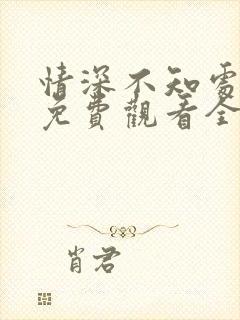 情深不知處
免費觀看全
肖君